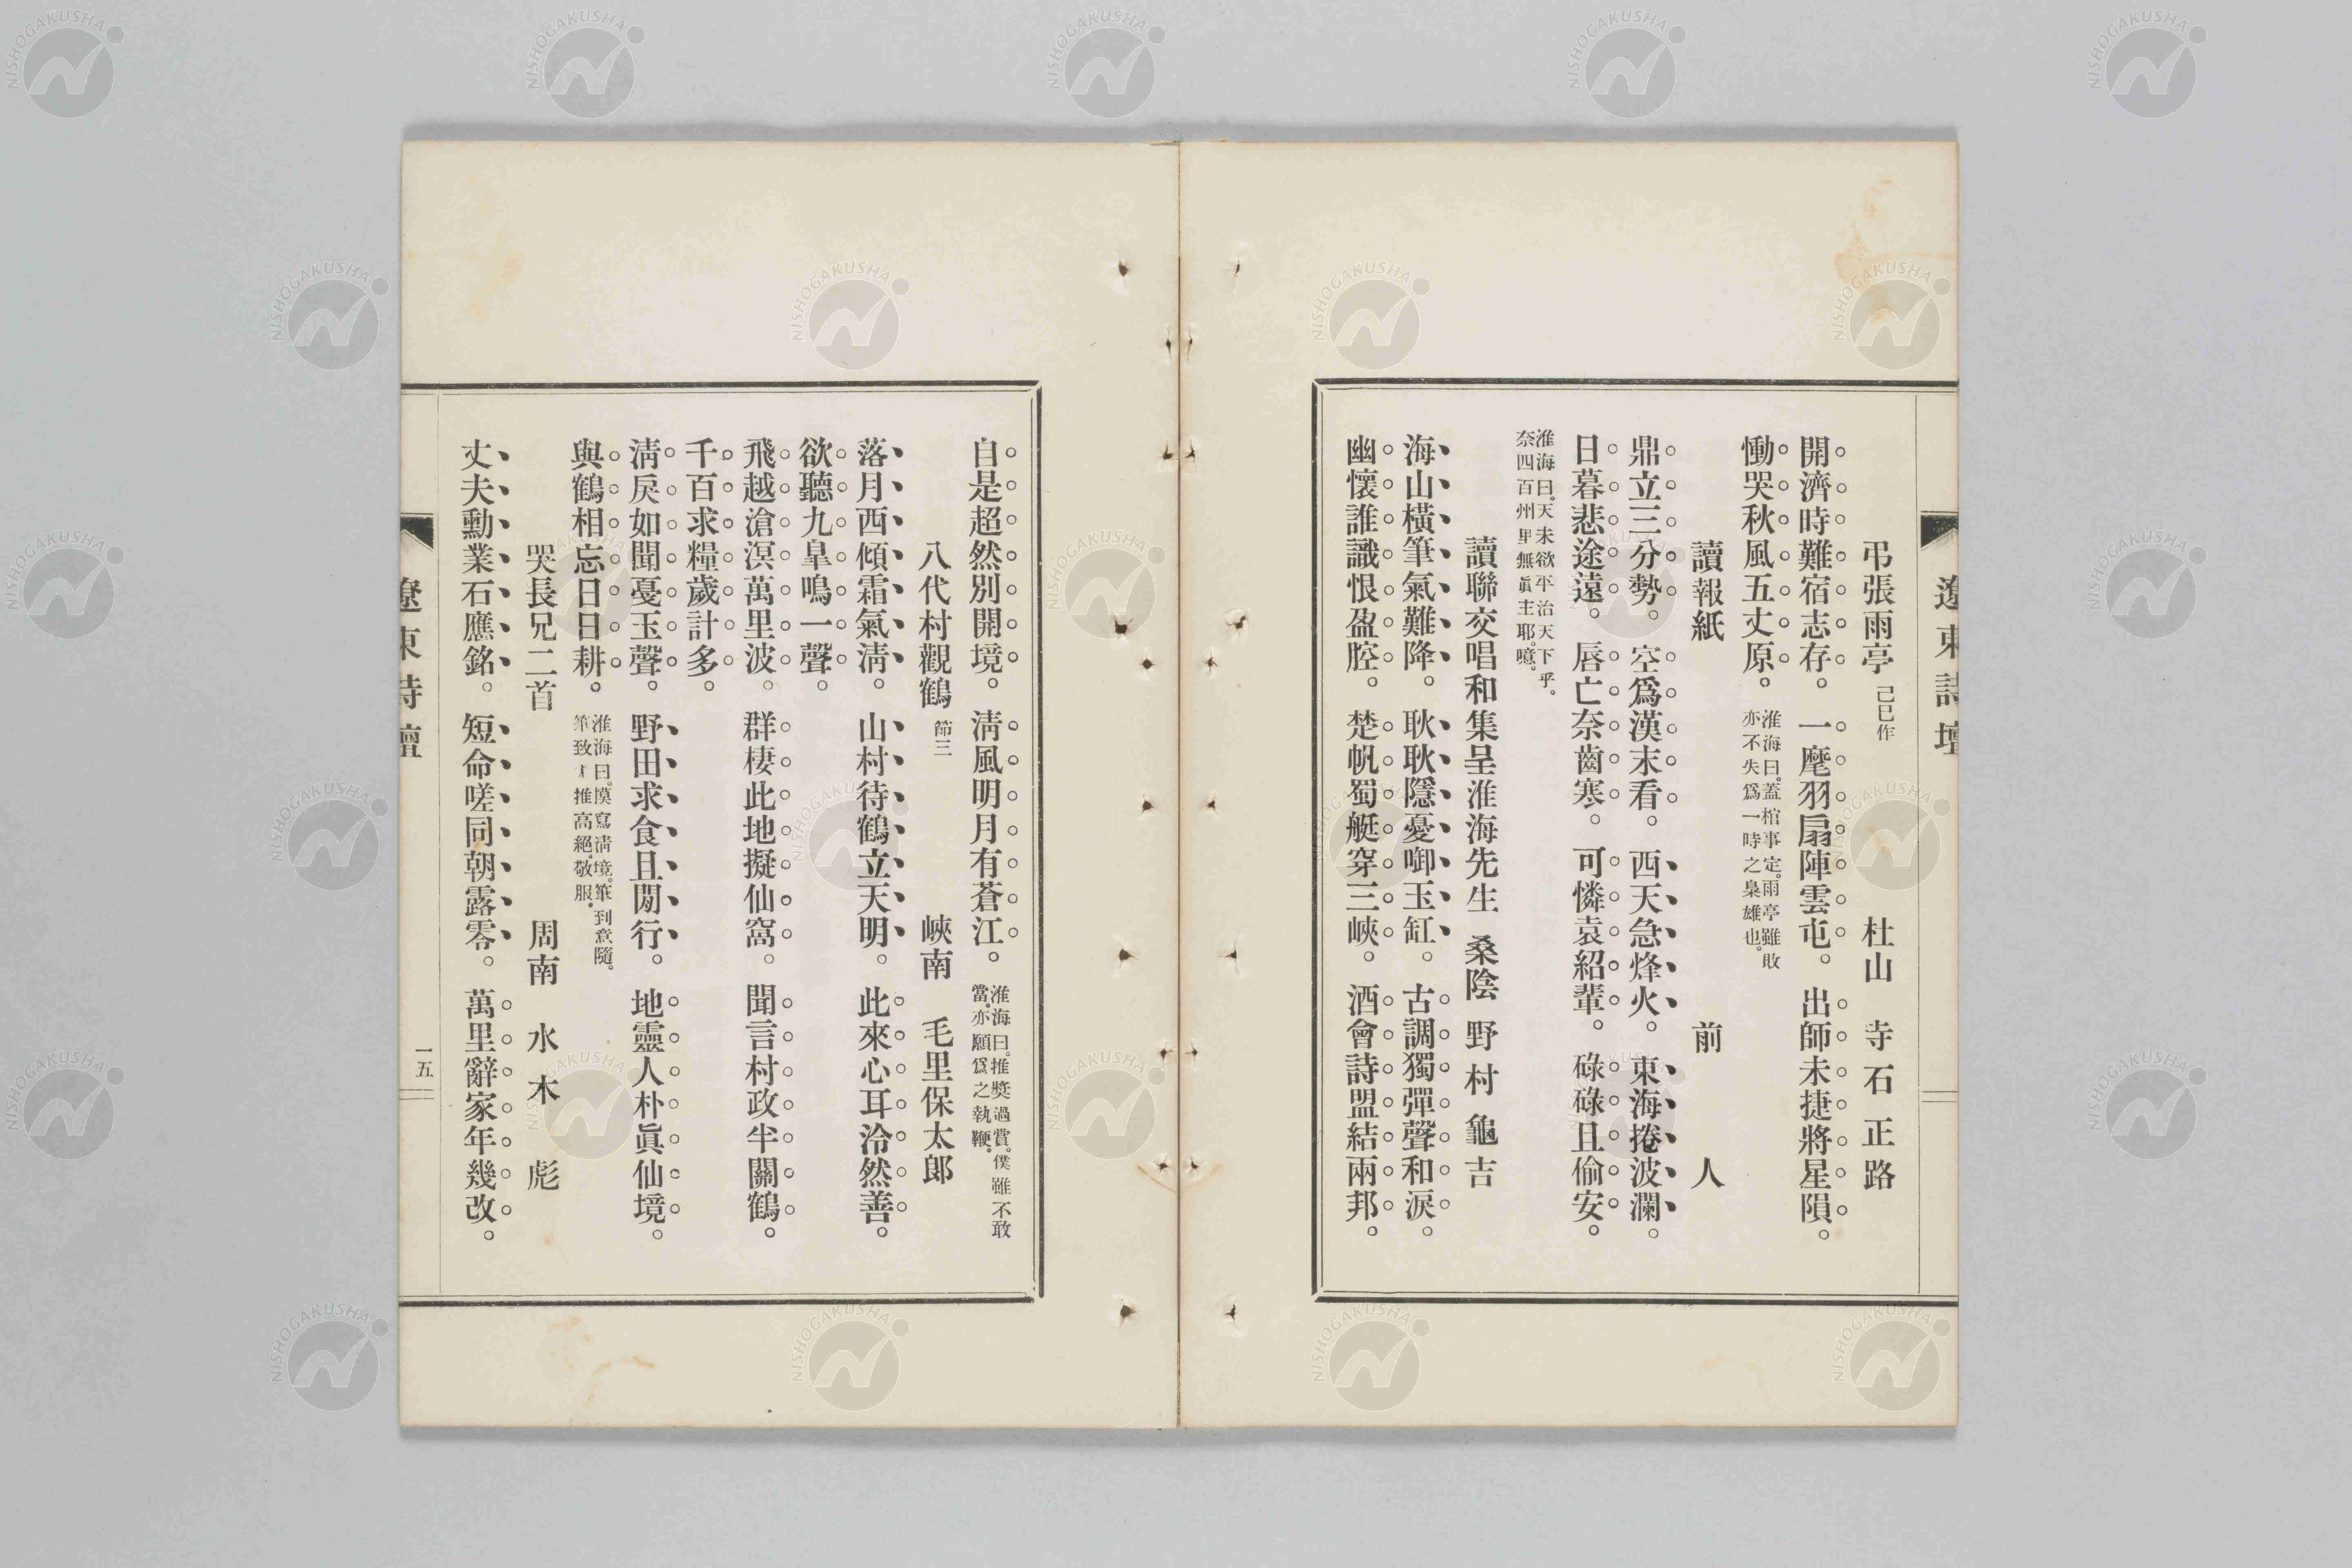 遼東詩壇
弔張雨亭 己巳作 杜山 寺石正路
開濟時難宿志存。一麾羽扇陣雲屯。出師未捷將星隕。
慟哭秋風五丈原。淮海曰。蓋棺事定。雨亭雖敗亦不失爲一時之梟雄也。
讀報紙 前人
鼎立三分勢。空爲漢末看。西天急烽火。東海捲波瀾。
日暮悲途遠。唇亡奈齒寒。可憐袁紹輩。碌碌且偷安。
淮海曰。天未欲平治天下乎。奈四百州里無眞主耶。噫。
讀聯交唱和集呈淮海先生 桑陰 野村龜吉
海山橫筆氣難降。耿耿隱憂啣玉缸。古調獨彈聲和淚。
幽懷誰識恨盈腔。楚帆蜀艇穿三峽。酒會詩盟結兩邦。
自是超然別開境。淸風明月有蒼江。淮海曰。推奬過賞。僕雖不敢當。亦願爲之執鞭。
八代村觀鶴 節三 峽南 毛里保太郎
落月西傾霜氣淸。山村待鶴立天明。此來心耳泠然善。
欲聽九皐鳴一聲。
飛越滄溟萬里波。群棲此地擬仙窩。聞言村政半關鶴。
千百求糧歲計多。
淸戾如聞戞玉聲。野田求食且閒行。地靈人朴眞仙境。
與鶴相忘日日耕。淮海曰。摸寫淸境。筆到意隨。筆致才推高絕。敬服。
哭長兄二首 周南 水木彪
丈夫勳業石應銘。短命嗟同朝露零。萬里辭家年幾改。
遼東詩壇
一五
NISHOGAKUSHA